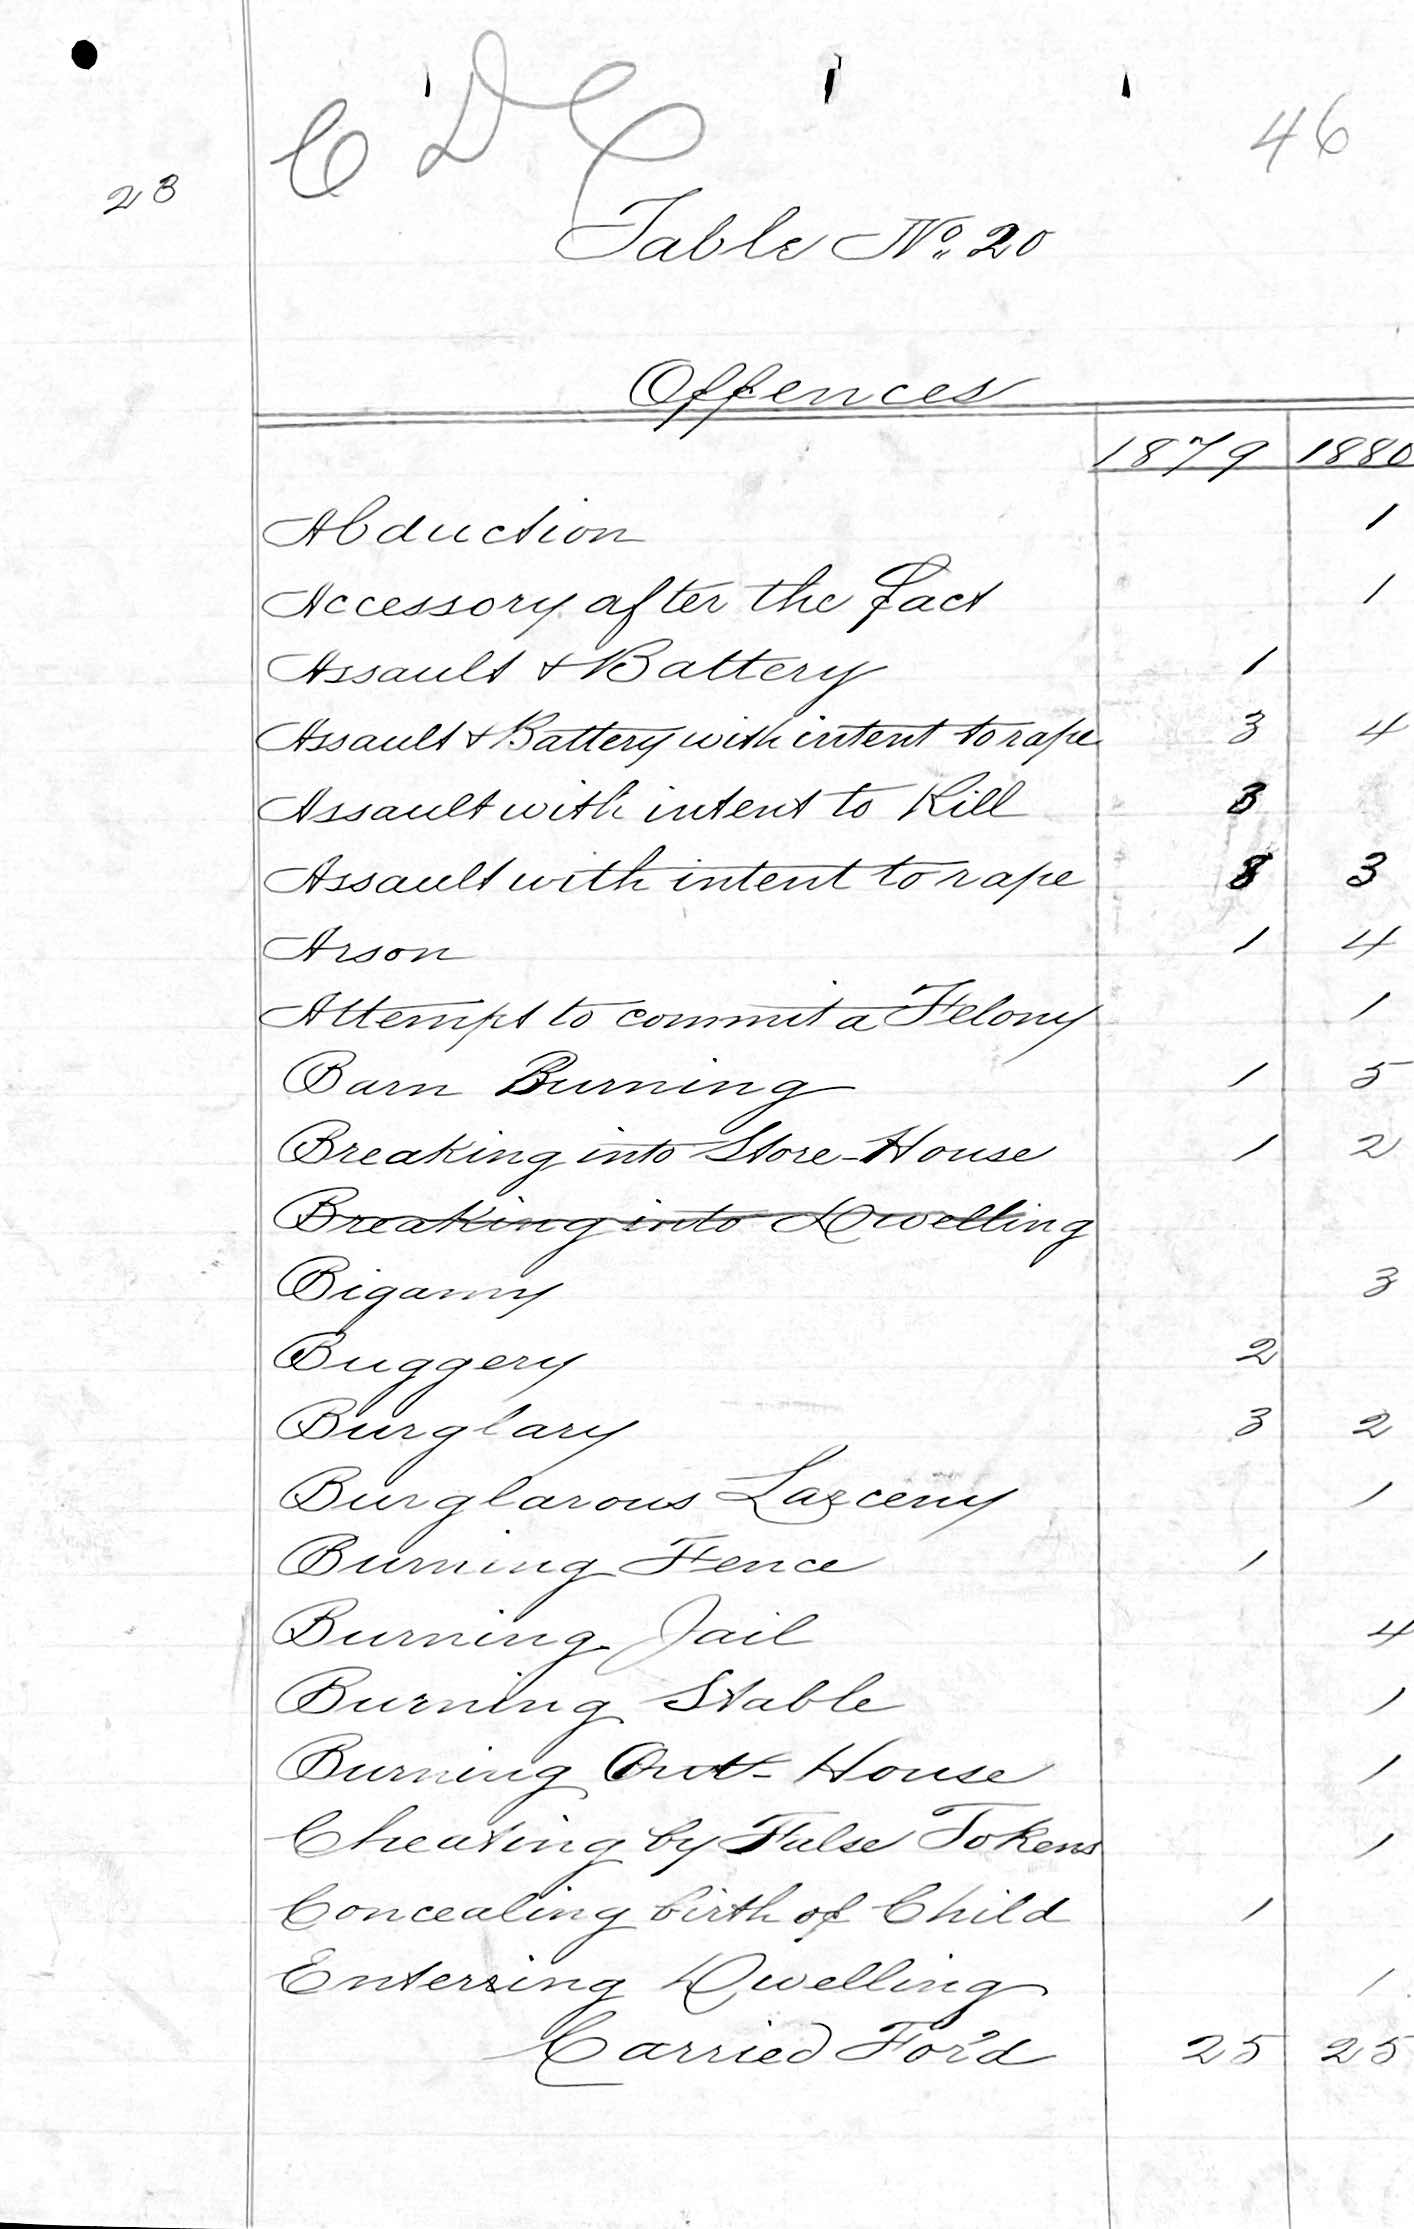 C D C
46
23
Table No. 20
Offences
1879 1880
Abduction 1
Accessory after the fact 1
Assault & Battery 1
Assault & Battery with intent to rape 3 4
Assault with intent to Kill 3
Assault with intent to rape 8 3
Arson 1 4
Attempt to commit a Felony 1
Barn Burning 1 5
Breaking into Store-House 1 2
Breaking into Dwelling
Bigamy 3
Buggery 2
Burglary 3 2
Burglarous Larceny 1
Burning Fence 1
Burning Jail 4
Burning Stable 1
Burning Out-House 1
Cheating by False Tokens 1
Concealing birth of Child 1
Enterring Dwelling 1
Carried For'd 25 25